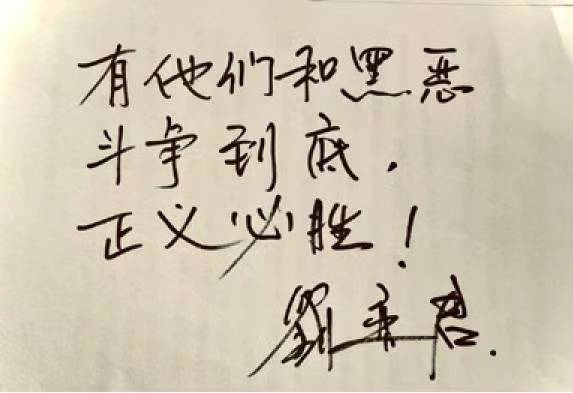 有他们和黑恶
斗争到底.
正义必胜！
劉